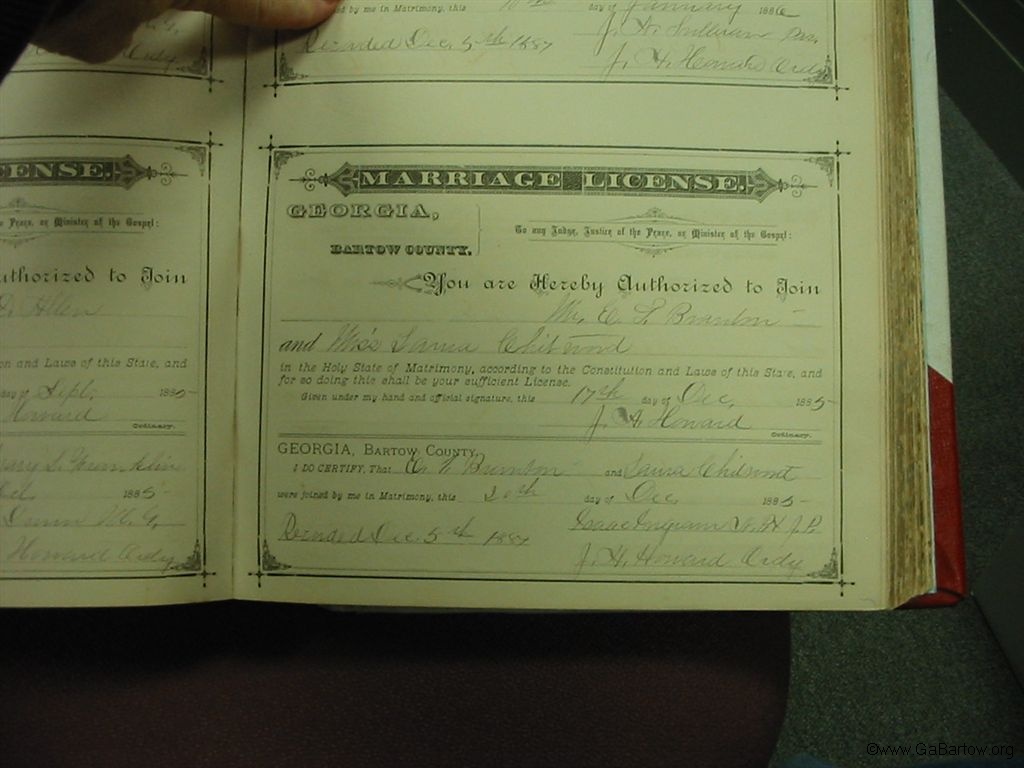 ed by me in Matrimony, this 10th day of January 1886
Recorded Dec. 5th 1887 J. W. Sullivan
Ordy. J. A. Howard Ordy
CENSE.
Peace, or Minister of the Gospel:
uthorized to Join
Allen
on and Laws of this State, and
day of Sept. 1885
Howard
Ordinary.
ary S. Franklin
1885
M. G.
Howard Ordy
MARRIAGE LICENSE.
GEORGIA,
BARTOW COUNTY.
To any Judge, Justice of the Peace, or Minister of the Gospel:
You are Hereby Authorized to Join
Mr. C. L. Branton
and Miss Laura Chitwood
in the Holy State of Matrimony, according to the Constitution and Laws of this State, and
for so doing this shall be your sufficient License.
Given under my hand and official signature, this 17th day of Dec. 1885
J. A. Howard
Ordinary.
GEORGIA, BARTOW COUNTY.
I DO CERTIFY, That C. L. Branton and Laura Chitwood
were joined by me in Matrimony, this 20th day of Dec. 1885
Recorded Dec. 5th 1887 Isaac Ingram J.P.
J. A. Howard Ordy
©www.GaBartow.org